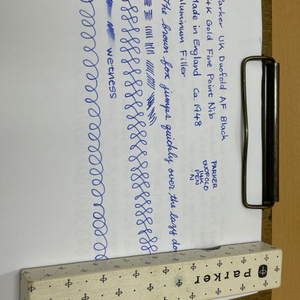 Parker UK Duofold AF Black
14K Gold Fine Point Nib
Made in England Ca. 1948
Aluminum Filler
PARKER
DUOFOLD
INK
PEN
N
The brown fox jumps quickly over the lazy do
wetness
Parker